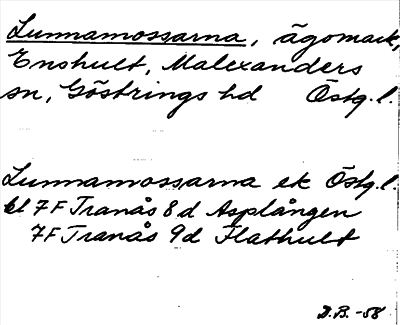 Lunnamossarna, ägomark,
Enshult, Malexanders
sn, Göstrings hd Östg. l.
Lunnamossarna ek Östg. l.
bl 7F Tranås 8d Asplången
7F Tranås 9d Flathult
D.B. -58